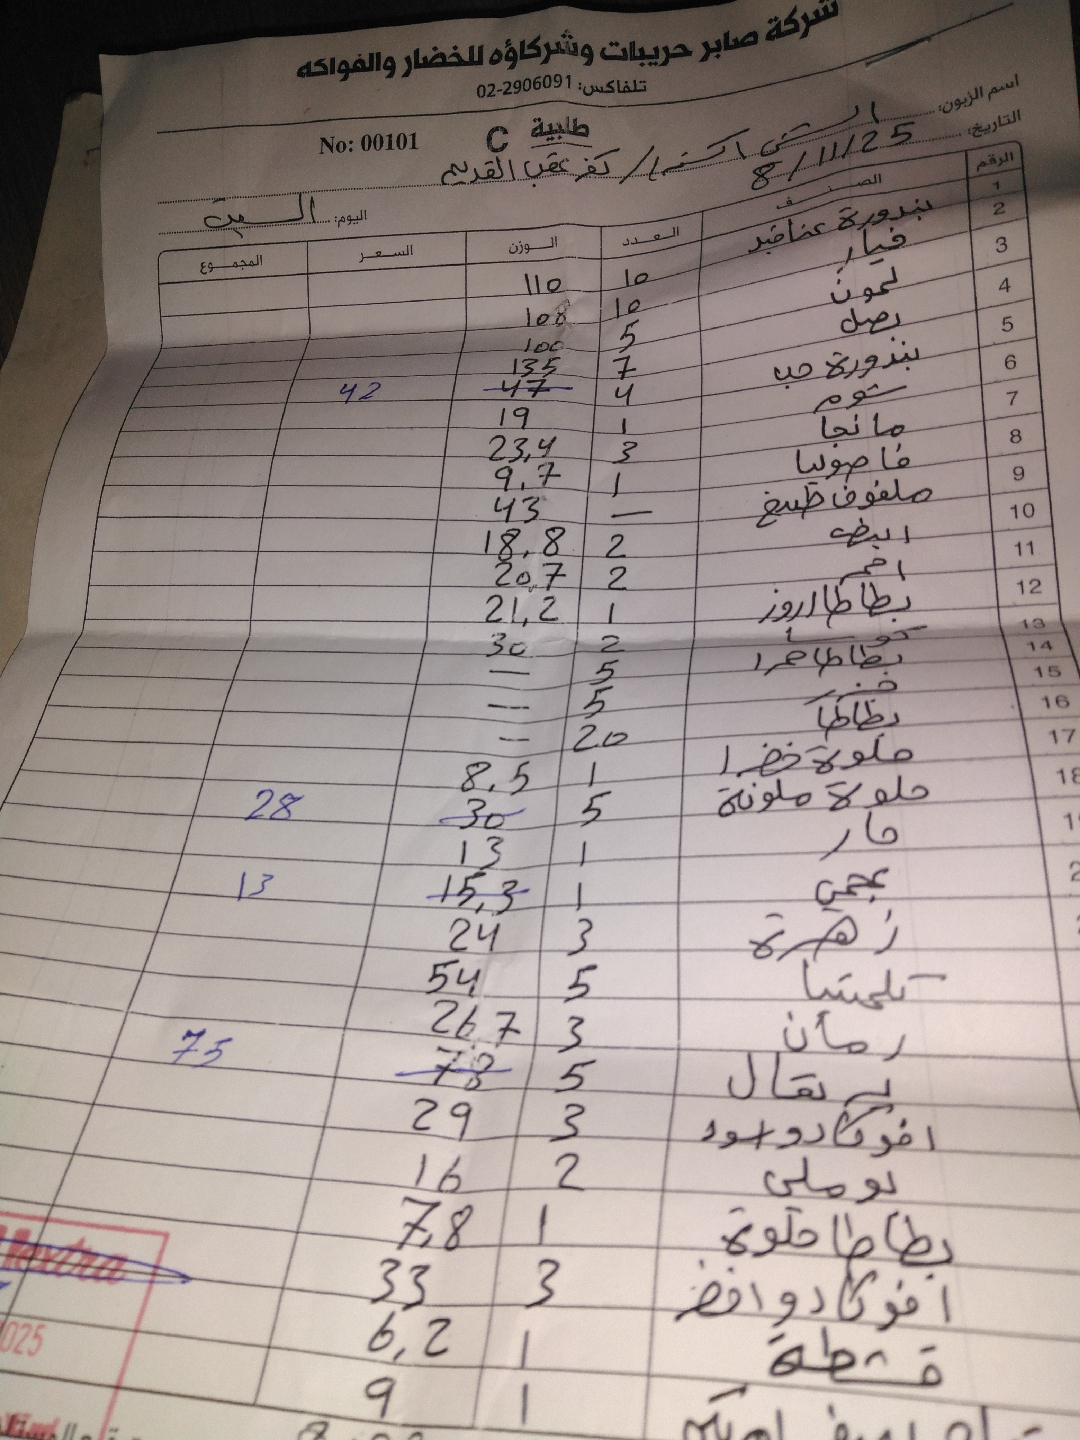 شركة صابر حريبات وشركاؤه للخضار والفواكه
تلفاكس: 02-2906091
No: 00101 طلبية C
اسم الزبون: الـ / كفر عقب القديم
التاريخ: 8/11/25
اليوم: السبت
الرقم الصنف العدد الوزن السعر المجموع
1 بندورة عناقيد 10 110
2 خيار 10 108
3 ليمون 5 100
4 بصل 7 135
5 بندورة حب 4 47 42
6 ثوم 1 19
7 مانجا 3 23,4
8 فاصوليا 1 9,7
9 ملفوف طبيخ — 43
10 ابيض 2 18,8
11 احمر 2 20,7
12 بطاطا روز 1 21,2
13 كوسا 2 30
14 بطاطا حمرا 5 —
15 5 —
16 بطاطا 20 —
17 حلوة خضرا 1 8,5
18 حلوة ملونة 5 30 28
حار 1 13
عجمي 1 15,3 13
زهرة 3 24
كلمنتينا 5 54
رمان 3 26,7
برتقال 5 78 75
افوكادو اسود 3 29
بوملي 2 16
بطاطا حلوة 1 7,8
افوكادو اخضر 3 33
قشطة 1 6,2
1 9